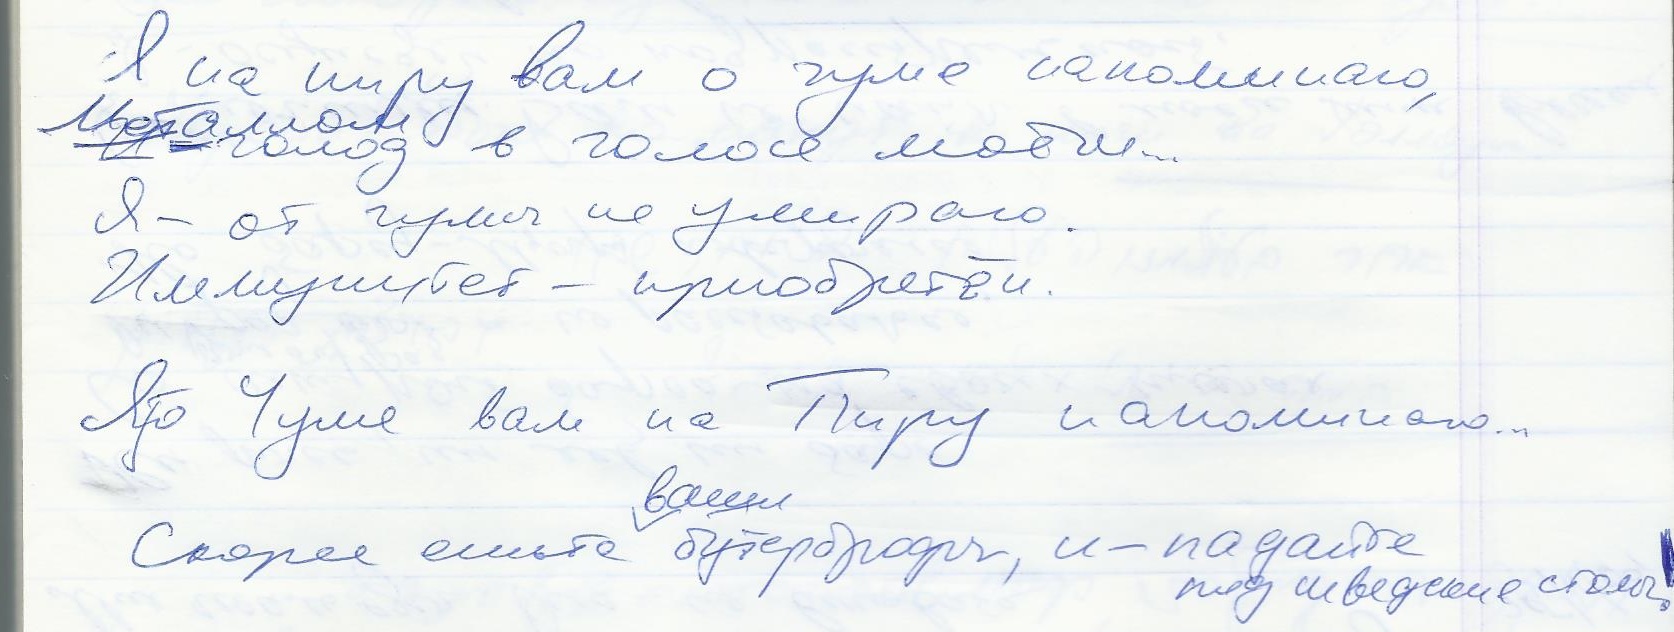 Я на пиру вам о чуме напоминаю,
Металлом
И голод в голосе моём...
Я – от чумы не умираю.
Иммунитет – приобретён.
Я о Чуме вам на Пиру напоминаю...
ваши
Скорее ешьте бутерброды, и – падайте
под шведские столы!